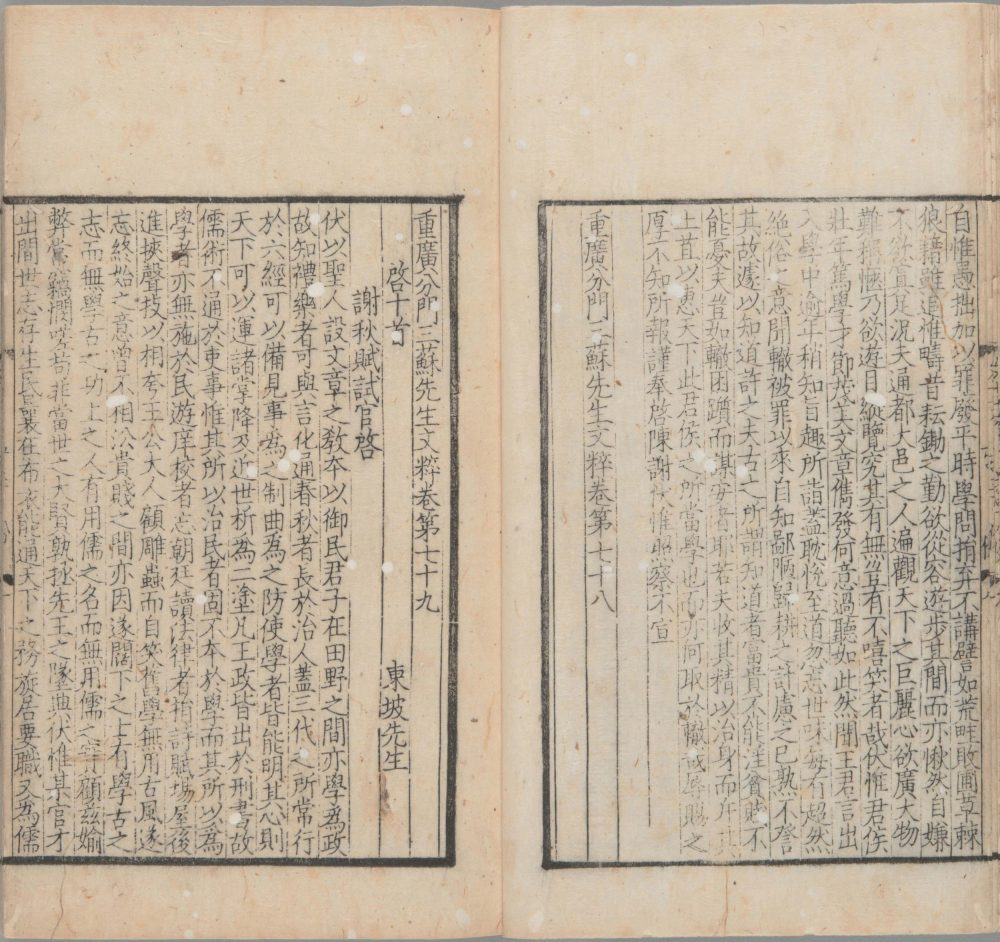 自惟愚拙加以罪廢平時學問捐弃不講譬如荒畦敗圃草棘
狼藉雖追惟疇昔耘鋤之勤欲從容遊步其間而亦愀然自嫌
不欲宜足況夫通都大邑之人遍觀天下之巨麗心欲廣大物
難稱愜乃欲遊目縱覽究其有無豈有不嘻笑者哉伏惟君侯
壯年篤學才節茂美文章儁發何意過聽如此然聞王君言出
入學中逾年稍知旨趣所詣蓋耽悅至道勿忘世味每有超然
絕俗之意開轍被罪以來自知鄙陋歸耕之計慮之已熟不啻
其故遽以知道許之夫古之所謂知道者富貴不能淫貧賤不
能憂夫豈如轍困躓而謀安者耶若夫收其精以治身而斥其
土苴以惠天下此君侯之所當學也而亦何取於轍誠辱賜之
厚不知所報謹奉啓陳謝伏惟昭察不宣
重廣分門三蘇先生文粹卷第七十八
重廣分門三蘇先生文粹卷第七十九
啓十首 東坡先生
謝秋賦試官啓
伏以聖人設文章之教本以御民君子在田野之間亦學為政
故知禮樂者可與言化通春秋者長於治人蓋三代之所常行
於六經可以備見事為之制曲為之防使學者皆能明其心則
天下可以運諸掌降及近世析為二塗凡王政皆出於刑書故
儒術不通於吏事惟其所以治民者固不本於學而其所以為
學者亦無施於民遊庠校者忘朝廷讀法律者捐詩賦場屋後
進挾聲技以相夸王公大人顧雕蟲而自笑舊學無用古風遂
忘終始之意曾不相沿貴賤之間亦因遂闊下之士有學古之
志而無學古之功上之人有用儒之名而無用儒之實顧茲媮
弊嘗竊憫嗟苟非當世之大賢孰拯先王之墜典伏惟某官才
出間世志存生民曩在布衣能通天下之務旋居要職又為儒